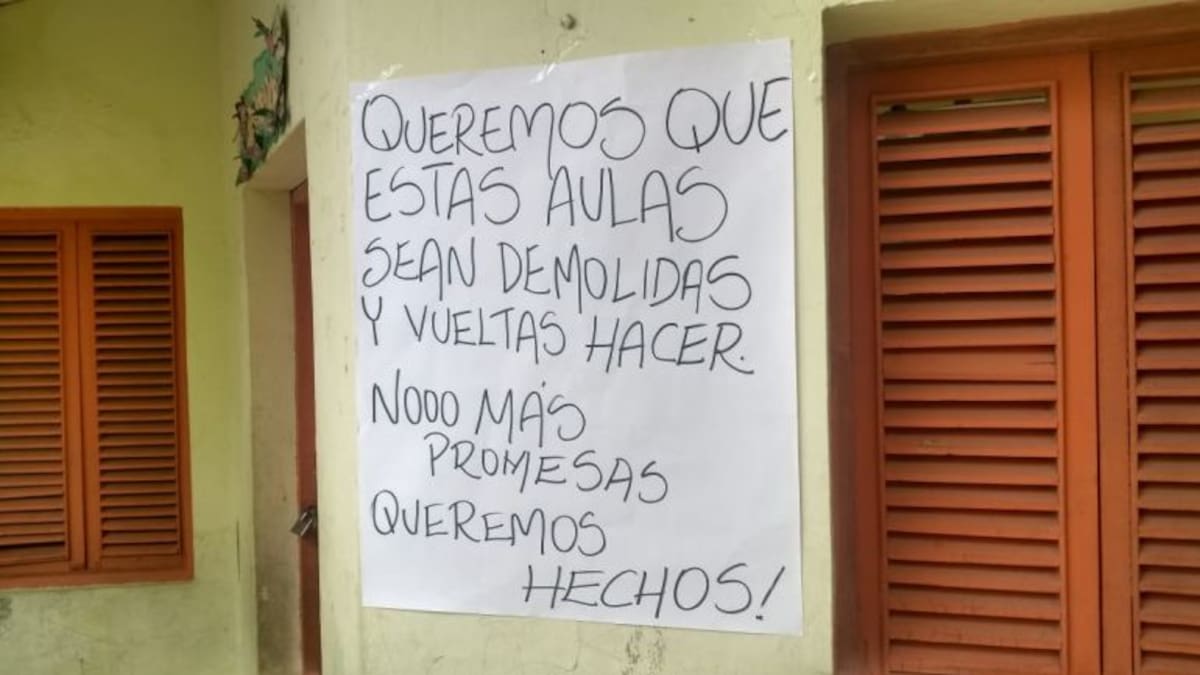 QUEREMOS QUE
ESTAS AULAS
SEAN DEMOLIDAS
Y VUELTAS HACER.
NOOO MÁS
PROMESAS
QUEREMOS
HECHOS!